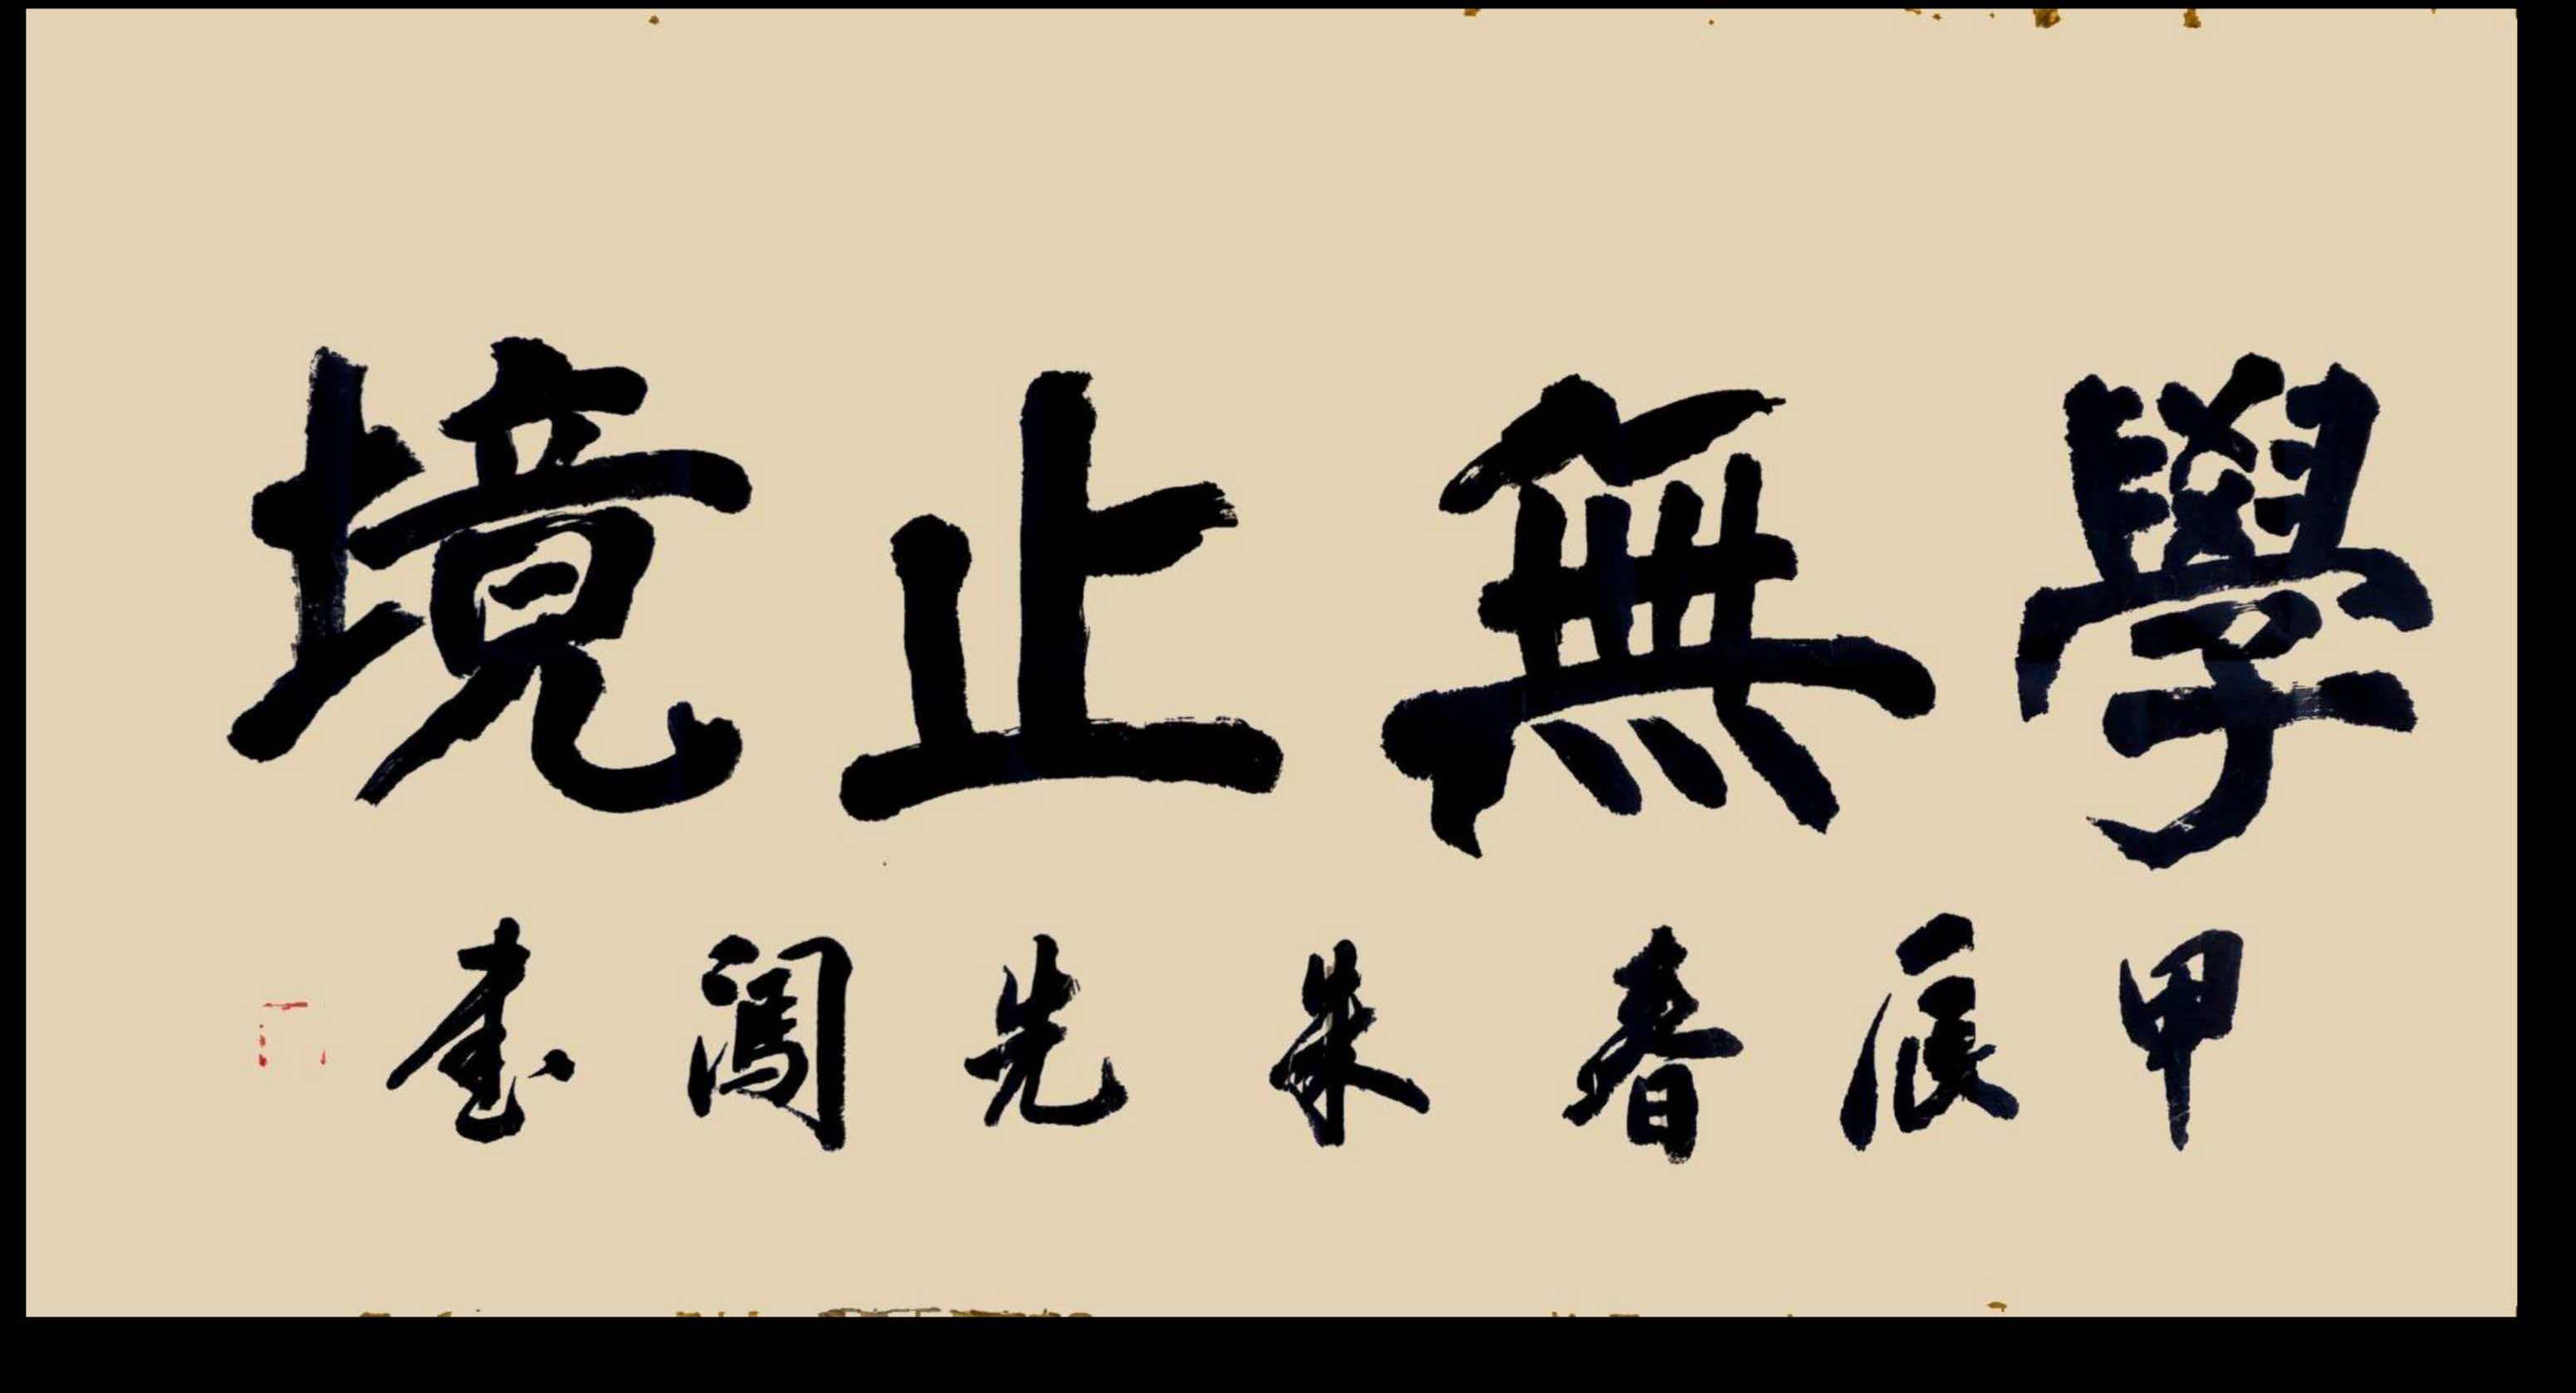 學無止境
甲辰春朱先闖書